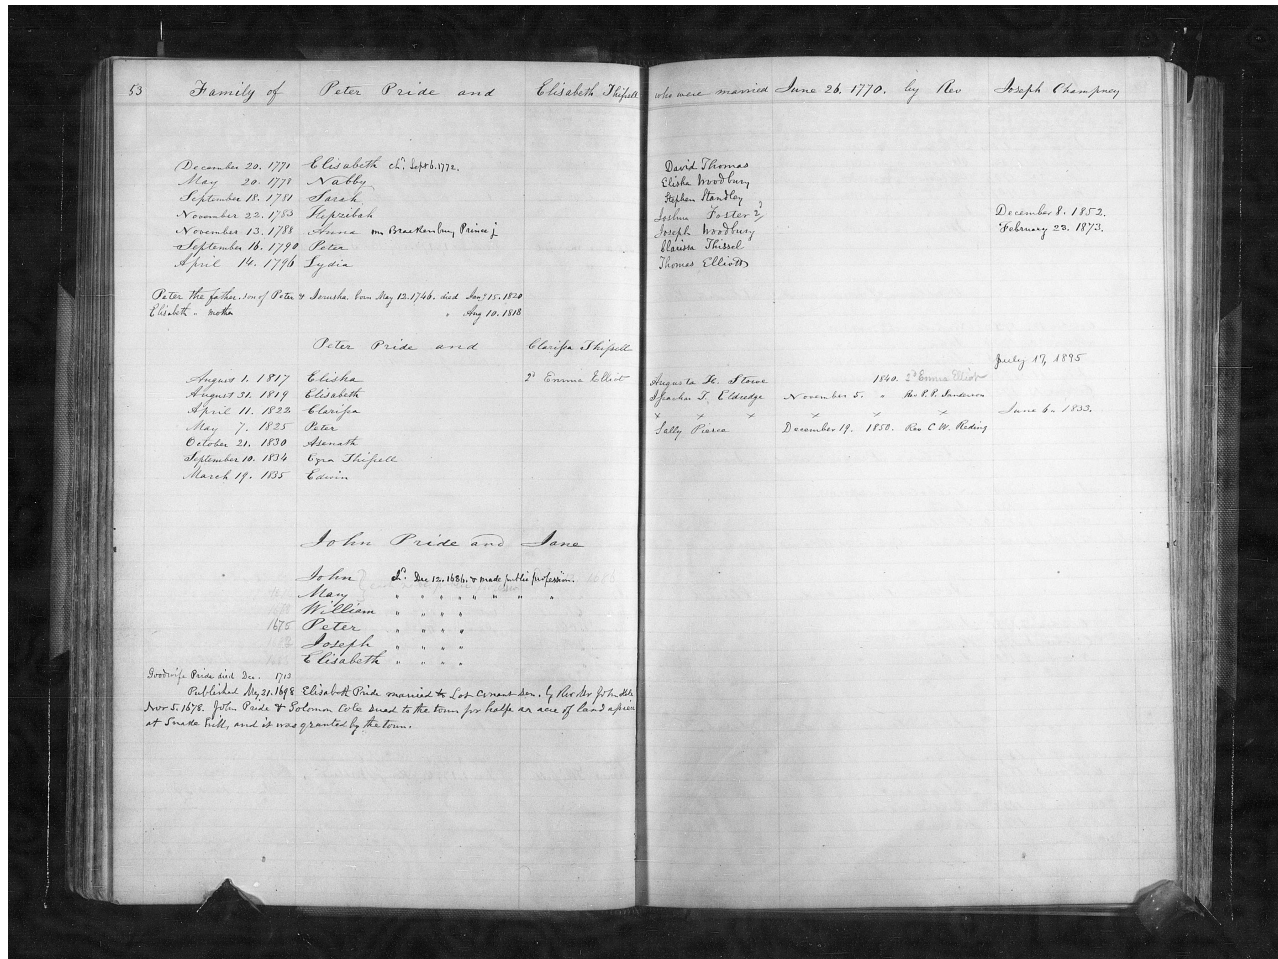 53 Family of Peter Pride and Elisabeth Thissell who were married June 26. 1770. by Rev Joseph Champney
December 20. 1771 Elisabeth ch. Sept 6. 1772. David Thomas
May 20. 1778 Nabby Elisha Woodbury
September 18. 1781 Sarah Stephen Standley
November 22. 1783 Hepzibah Joshua Foster 2d December 8. 1852.
November 13. 1788 Anna m Brackenbury Prince j Joseph Woodbury February 23. 1873.
September 16. 1790 Peter Clarissa Thissel
April 14. 1796 Lydia Thomas Elliott
Peter the father, son of Peter & Jerusha, born May 12. 1746. died Jany 15. 1820
Elisabeth " mother " Aug 10. 1818
Peter Pride and Clarissa Thissell
July 17, 1895
August 1. 1817 Elisha 2d Emma Elliot Augusta H. Stowe 1840. 2d Emma Elliot
August 31. 1819 Elisabeth T. Eldredge November 5. " Rev P. P. Sanderson
April 11. 1822 Clarissa x x x x x x June 6. 1833.
May 7. 1825 Peter Sally Pierce December 19. 1850. Rev C. W. Reding
October 21. 1830 Asenath
September 10. 1834 Ezra Thissell
March 19. 1835 Edwin
John Pride and Jane
John Dec 12. 1686. & made public profession.
Mary " " " " " " "
William " " " "
1675 Peter " " " "
Joseph " " " "
Elisabeth " " " "
Goodwife Pride died Dec. 1713
Published May 21. 1698 Elisabeth Pride married to Lot Conant Sen. by Rev Mr John Hale
Nov 5. 1678. John Pride & Solomon Cole sued to the town for halfe an acre of land apiece
at Snake hill, and it was granted by the town.